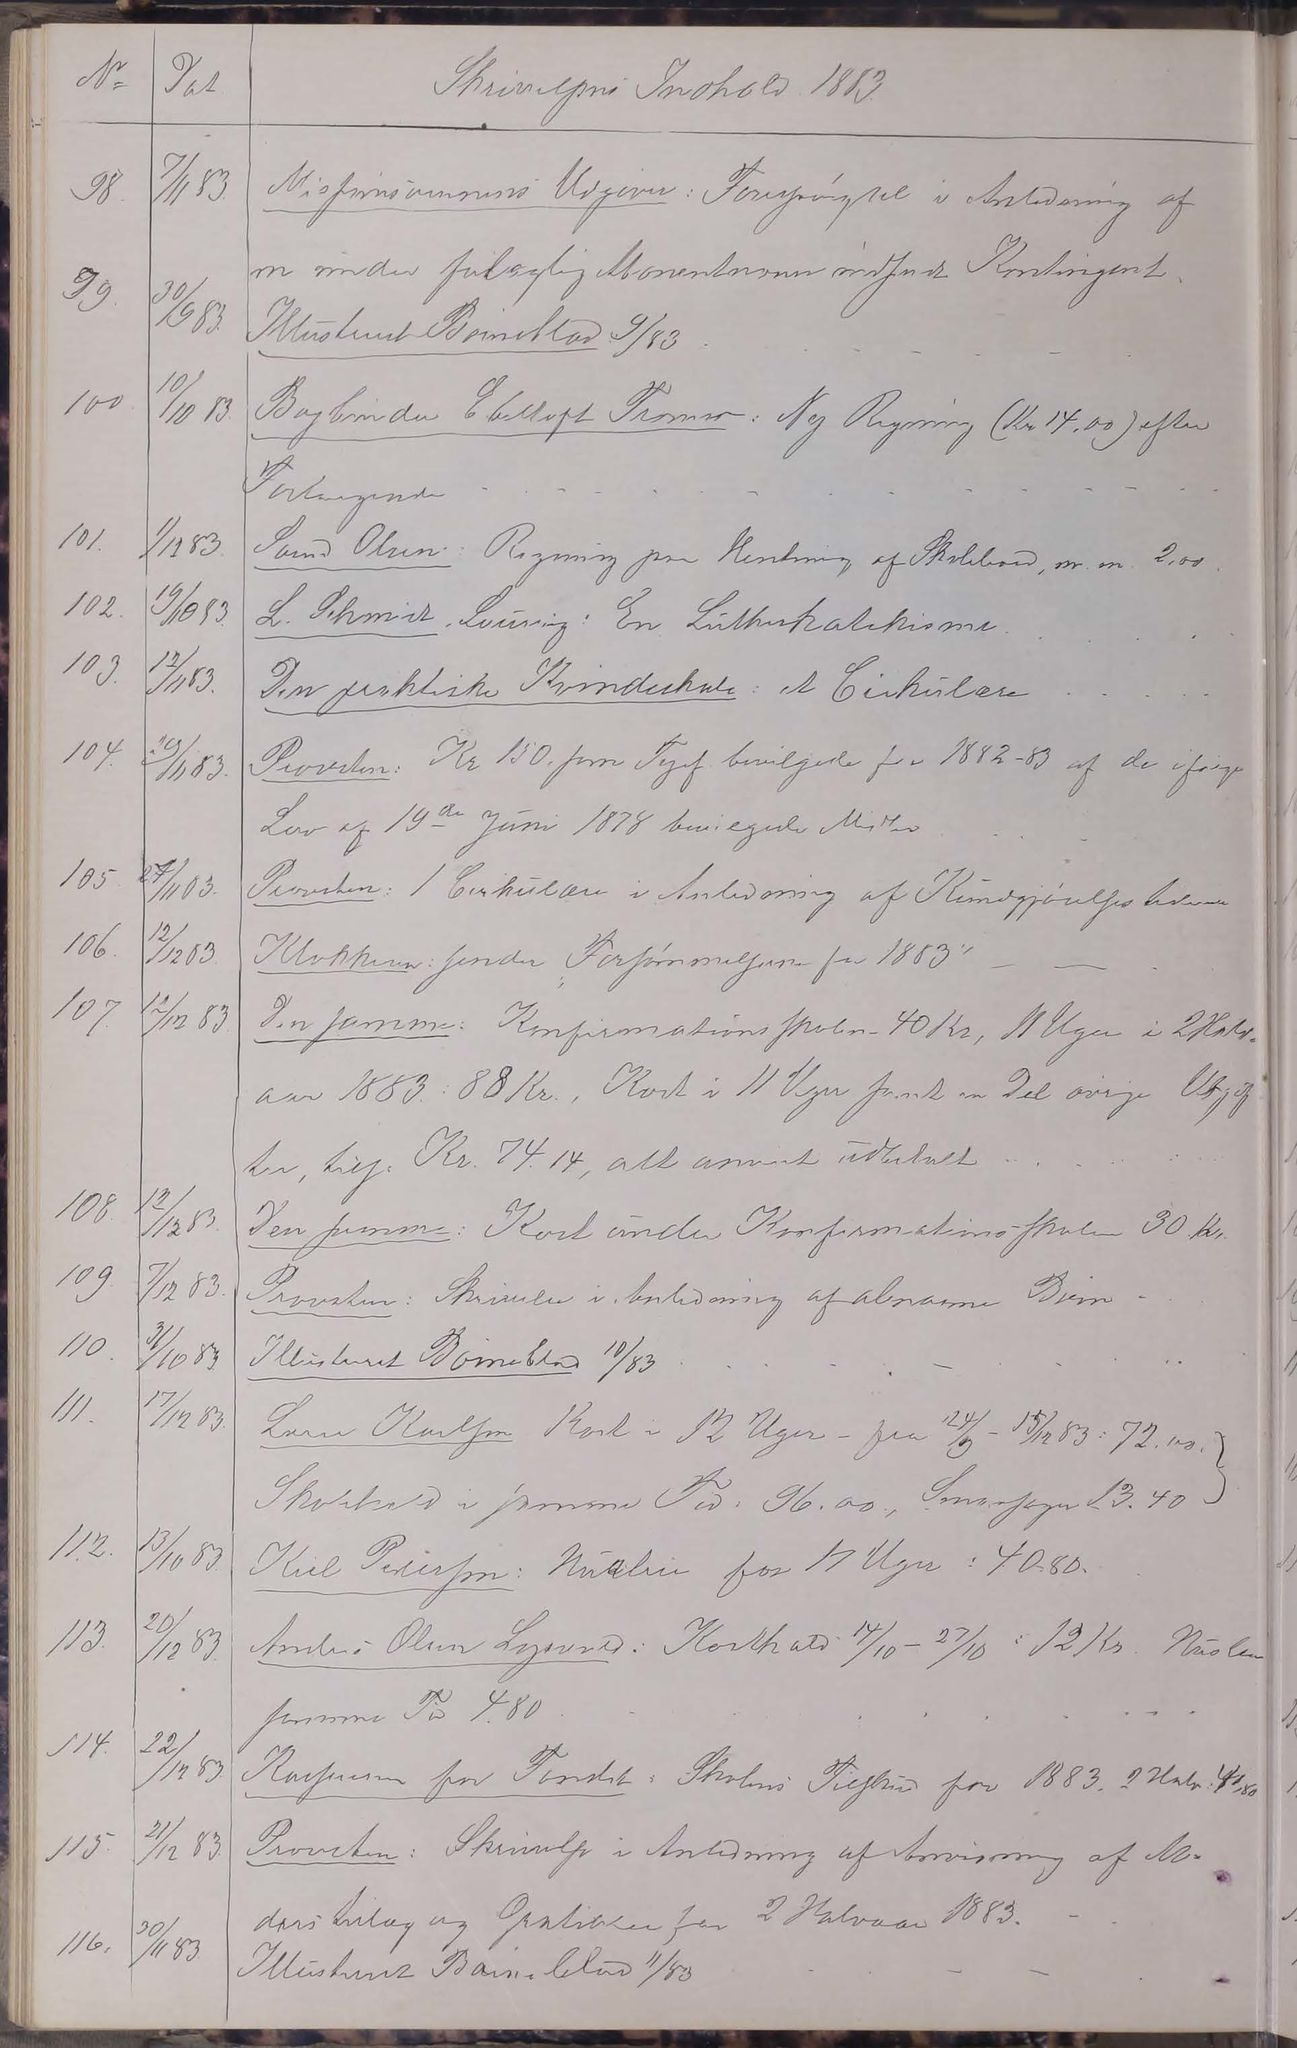 No Dat Skrivelsens Indhold. 1883.
98. 7/11 83. Missionsvennens Udgiver: Forespørgsel i Anledning af
en under Abonentnavn indsendt Kontingent.
99. 30/9 83. Illustreret Børneblad 9/83
100 10/10 83. Bogbinder Ebeltoft Tromsø: Ny Regning (Kr 14,00) efter
Forlangende
101. 1/12 83. Olsen: Regning paa Hentning af Skolebord, m. m. 2,00.
102. 19/10 83. L. Schmidt, : En Lutherkatekisme.
103. 12/11 83. Den praktiske Kvindeskole: et Cirkulære
104. 83. Provsten: Kr 150, som bevilgede for 1882-83 af de ifølge
Lov af 19de Juni 1878 bevilgede Midler
105. 27/11 83. Provsten: 1 Cirkulære i Anledning af
106. 12/12 83. Klokkeren: sender „Forsømmelserne for 1883"
107. 12/12 83. Den samme: Konfirmationsskolen 40 Kr, 11 Uger i 2 Halv-
aar 1883: 88 Kr., Kost i 11 Uger samt en Del øvrige Udgif
ter, tils. Kr. 74.14, alt anvist udbetalt
108. 12/12 83. Den samme: Kost under Konfirmationsskolen 30 Kr.
109. 7/12 83. Provsten: Skrivelse i Anledning af abnorme Børn
110. 31/10 83 Illustreret Børneblad 10/83
111. 17/12 83. Karlsen Kost i 12 Uger - fra 24/9 - 15/12 83: 72.00.
Skolehold i samme Tid: 96.00, 13.40
112. 13/10 83. Kiel Pedersen: Husleie for 17 Uger: 40.80.
113. 20/12 83. Anders Olsen : Kosthold 14/10 - 27/10: 12 Kr. Husleie
samme Tid 4.80
114. 22/12 83. Kassereren for Fondet: Skolens Tilskud for 1883. 2 Halv:
115. 21/12 83. Provsten: Skrivelse i Anledning af Anvisning af Al-
derstillæg og for 2 Halvaar 1883.
116. 30/11 83 Illustreret Børneblad 11/83